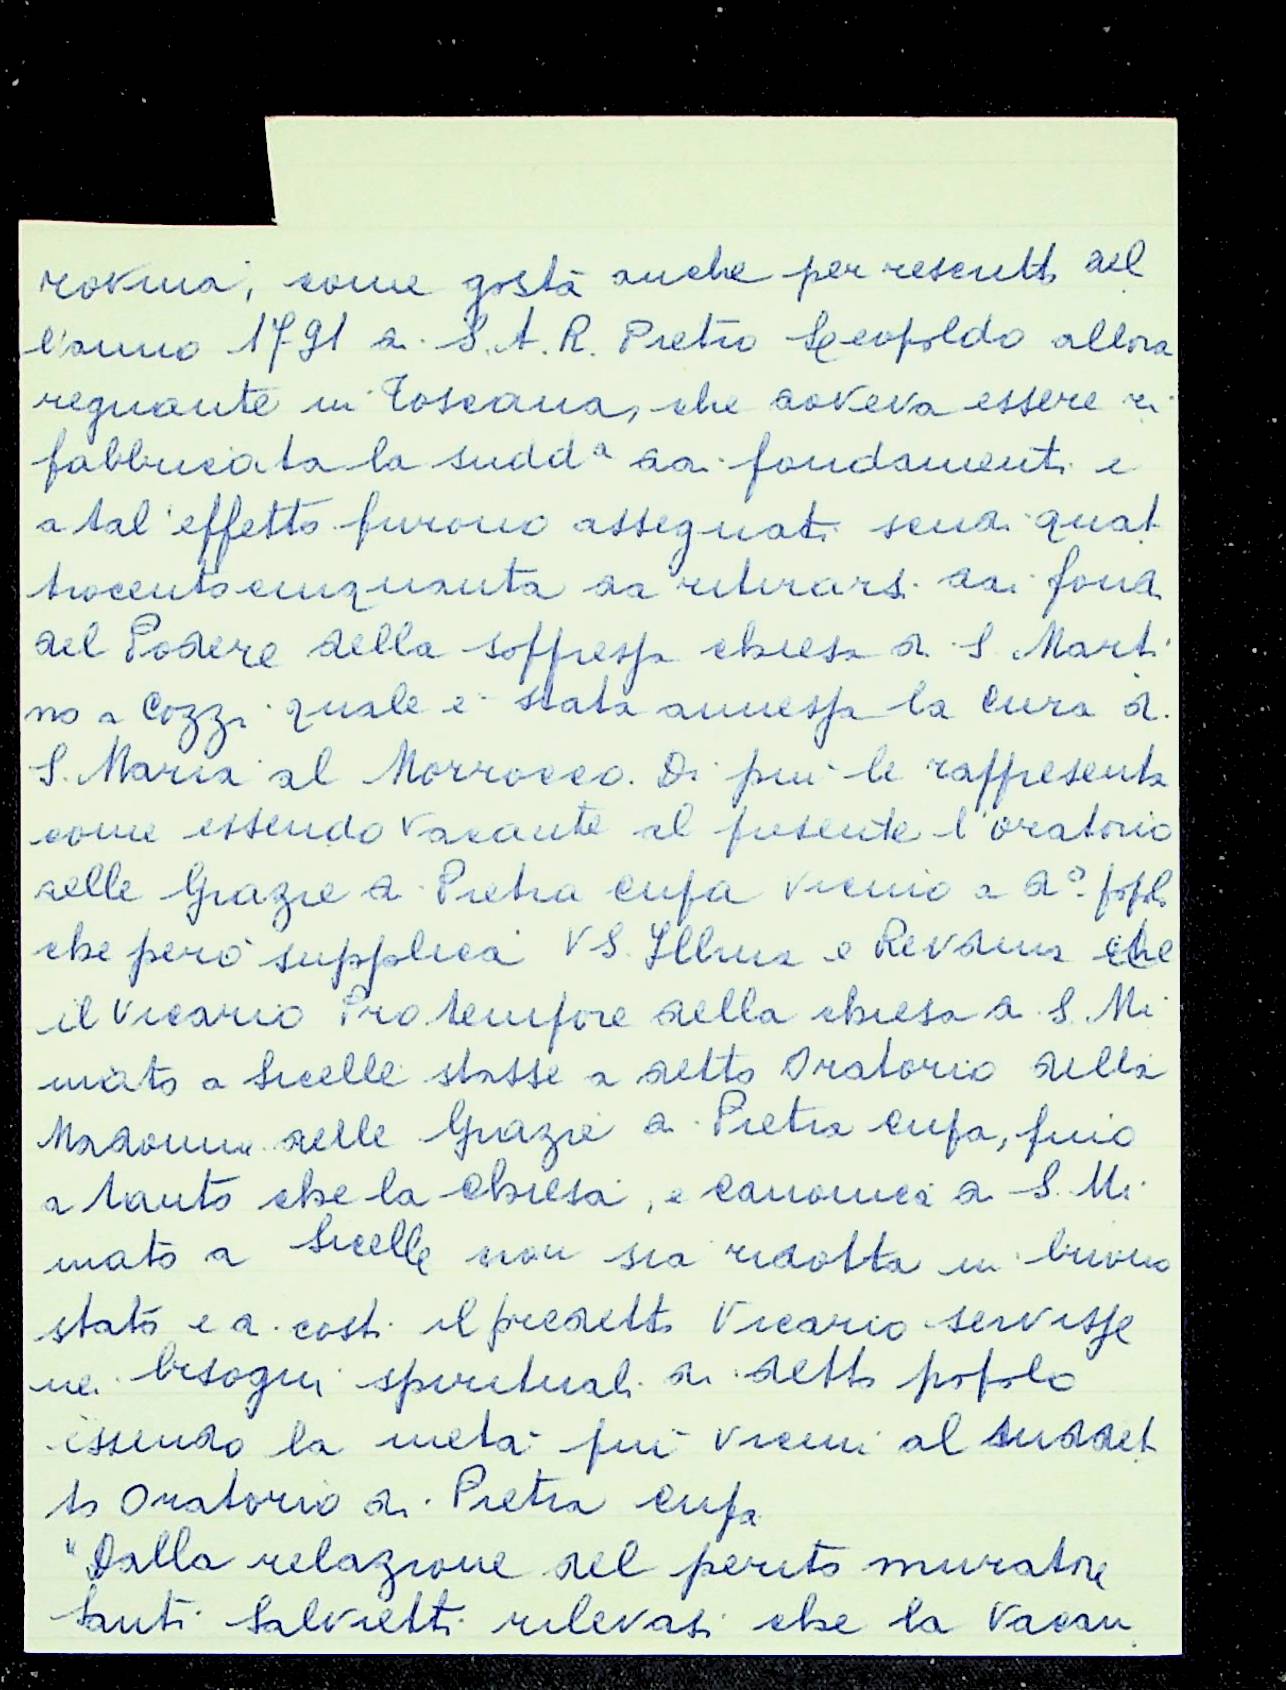 rovina, come gostà anche per rescritto del
l'anno 1791 di S.A.R. Pietro Leopoldo allora
regnante in Toscana, che doveva essere ri
fabbricata la suddª dai fondamenti e
a tal'effetto furono assegnati scudi quat
trocentocinquanta da ritirarsi dai fondi
del Podere della soppressa chiesa di S. Marti
no a Cozzi quale è stata annessa la Cura di
S. Maria al Morrocco. Di più le rappresenta
come essendo vacante al presente l'oratorio
delle Grazie di Pietra Cupa vicino a dº popolo
che però supplica VS. Illma e Revdma che
il Vicario Pro tempore della chiesa di S. Mi
niato a Sicelle stasse a detto Oratorio della
Madonna delle Grazie di Pietra Cupa, fino
a tanto che la Chiesa, e canonica di S. Mi
niato a Sicelle non sia ridotta in buono
stato e di costi il predetto Vicario servisse
nei bisogni spirituali di detto popolo
essendo la metà più vicini al suddet
to Oratorio di Pietra Cupa
"Dalla relazione del perito muratore
Santi Salvietti rilevasi che la Vacan